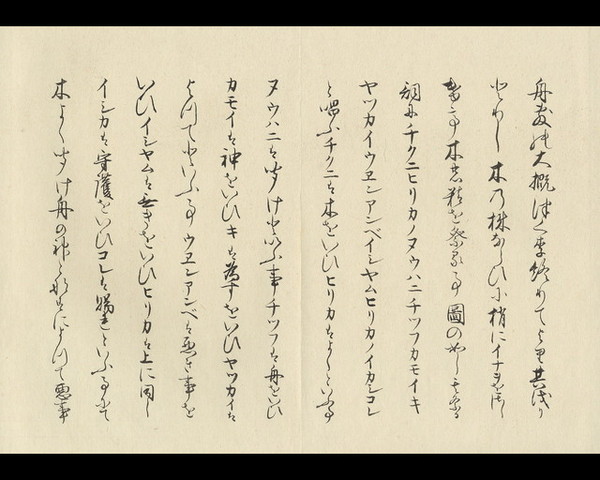 舟敷の大概はく事終りてより其伐り
とりし木の株ならひに小梢にイナヲを
木の霊を祭る事図の如し其祭る
詞にチクニヒリカノヌウハニチツフカモイキ
ヤツカイウヱンアンベイシヤムヒリカノイカシコレ
と唱ふチクニは木をいひヒリカはよくといふ事
ヌウハニは聞けといふ事チツフは舟をいひ
カモイは神をいひキは為すをいひヤツカイは
よつてといふ事ウヱンアンベは悪き事を
いひイシヤムは無きをいひヒリカは上に同し
イシカは守護をいひコレは賜れといふ事にて
木よく聞け舟の神となるによつて悪事